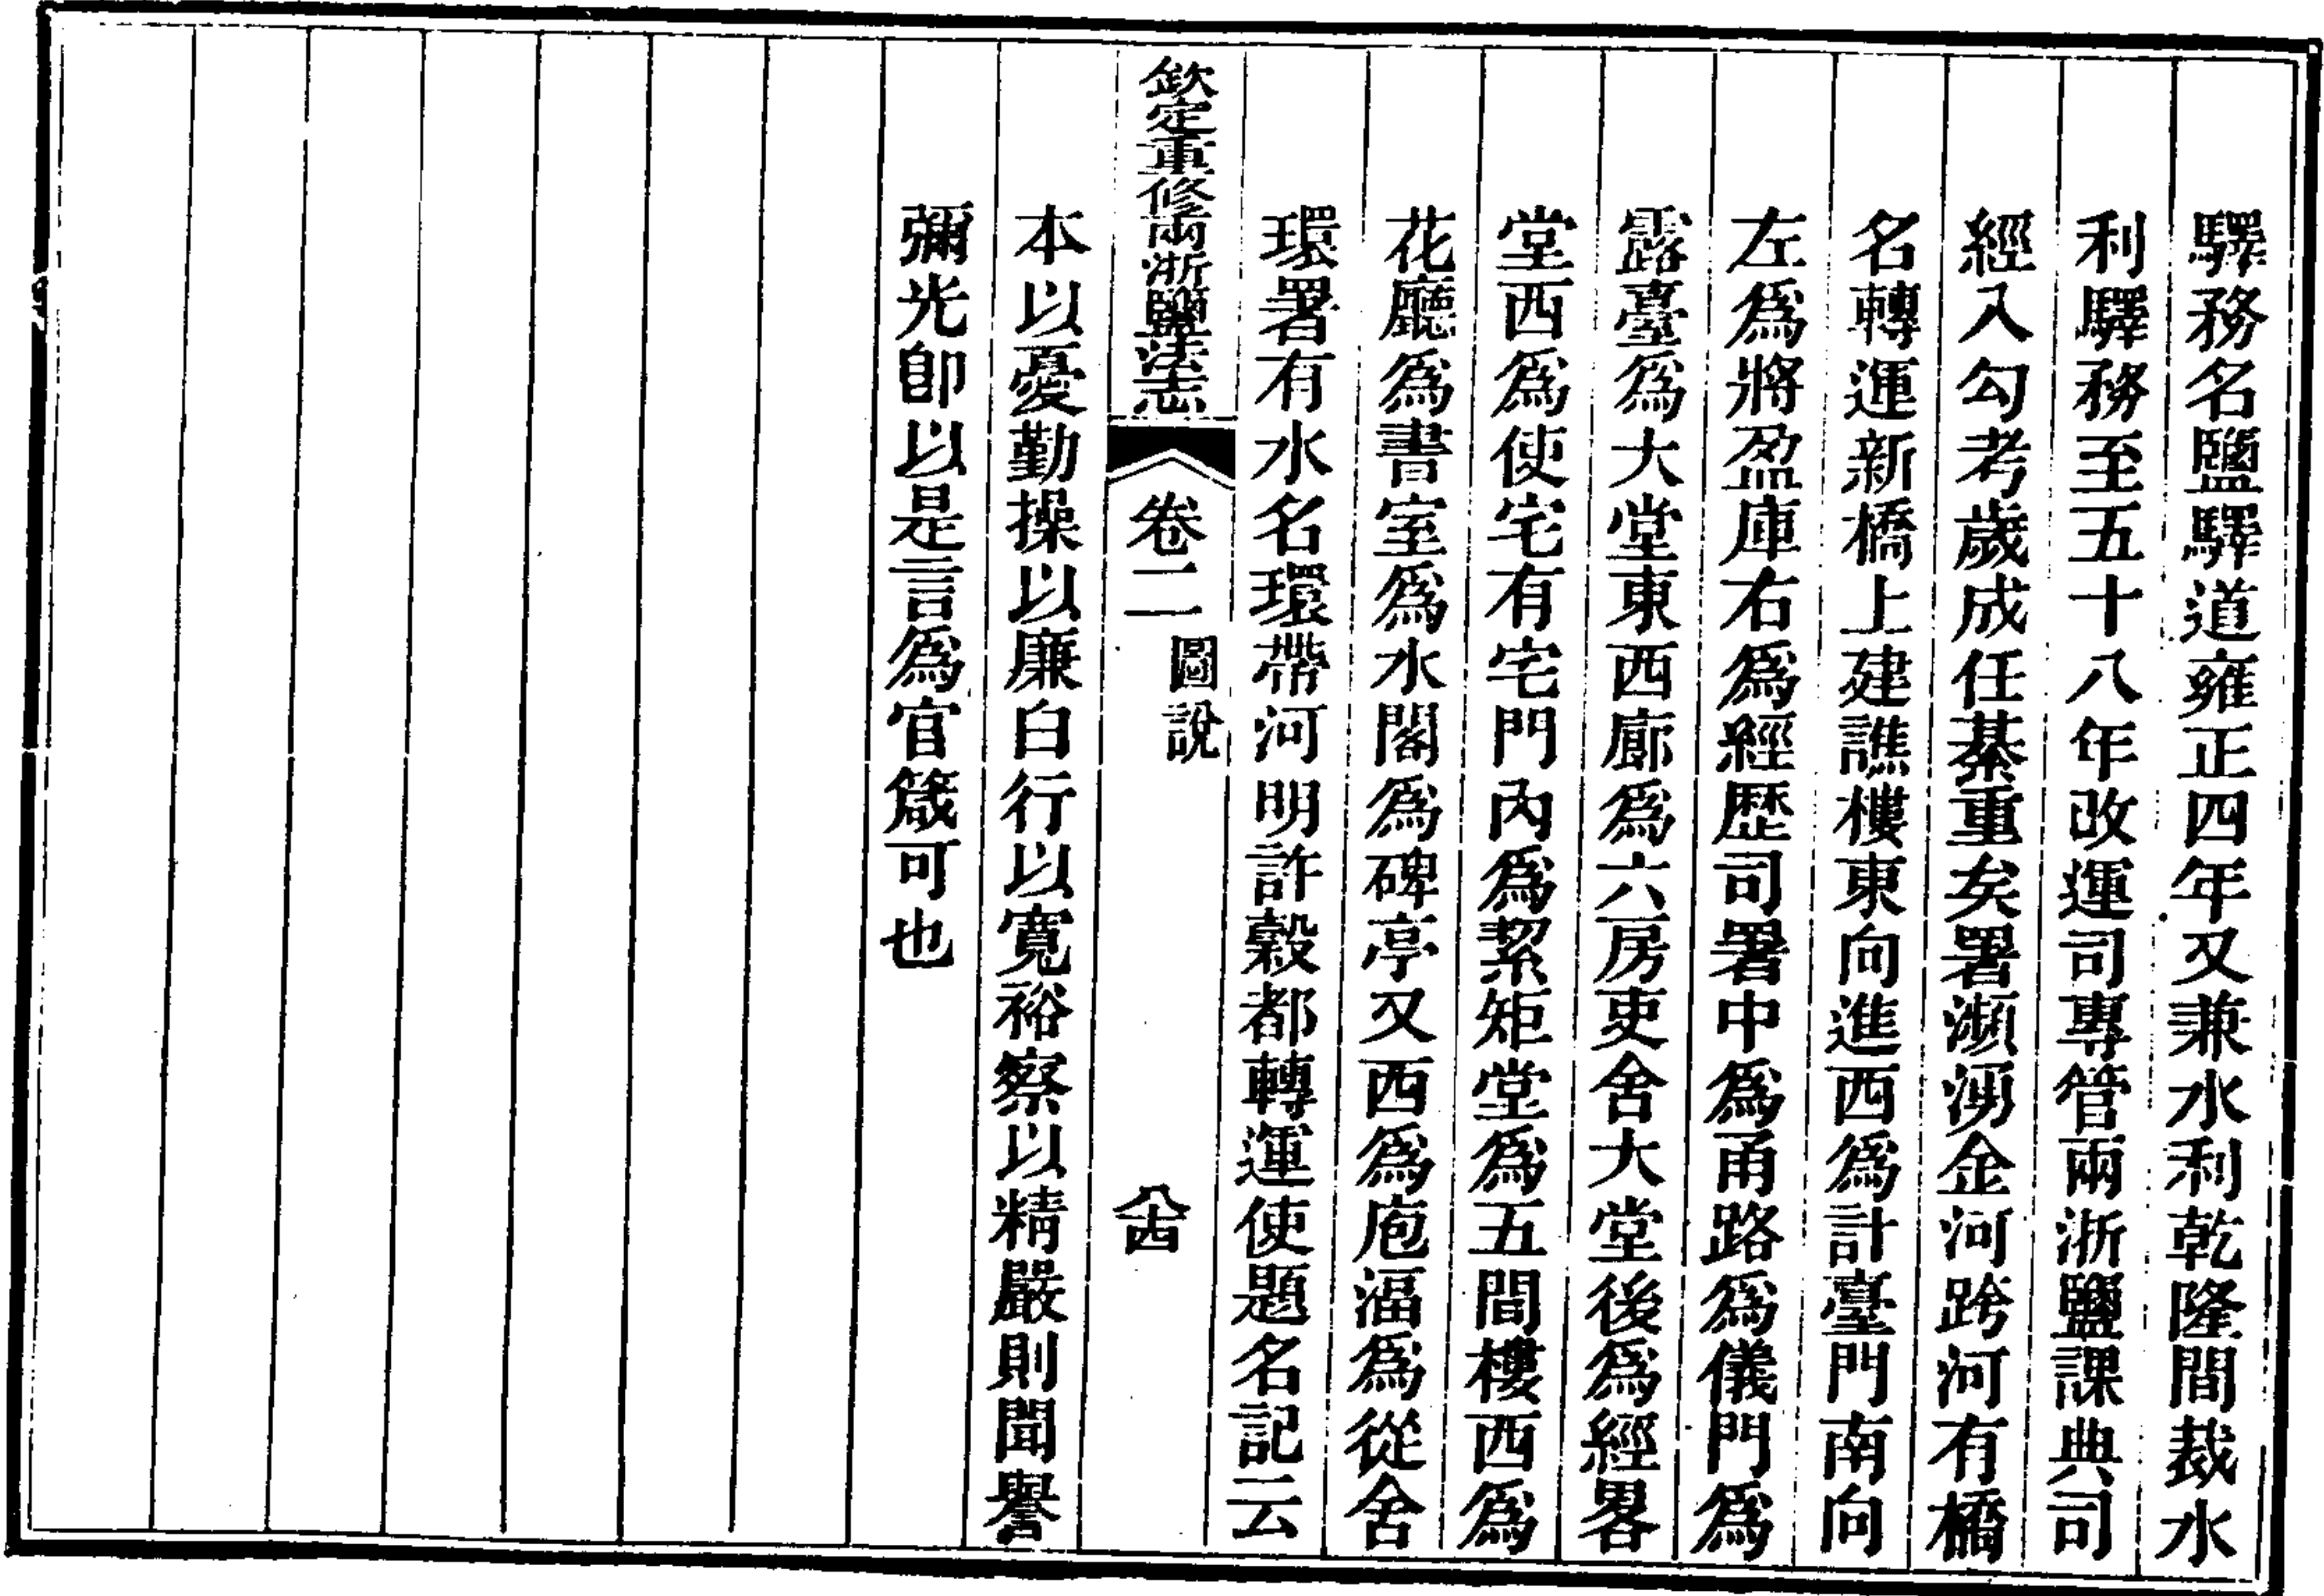 驛務名鹽驛道雍正四年又兼水利乾隆間裁水
利驛務至五十八年改運司專管兩浙鹽課典司
經入勾考歲成任綦重矣署瀕湧金河跨河有橋
名轉運新橋上建譙樓東向進西爲計臺門南向
左爲將盈庫右爲經歷司署中爲甬路爲儀門爲
露臺爲大堂東西廊爲六房吏舍大堂後爲經畧
堂西爲使宅有宅門內爲絜矩堂爲五間樓西爲
花廳爲書室爲水閣爲碑亭又西爲庖湢爲從舍
環署有水名環帶河明許穀都轉運使題名記云
欽定重修兩浙鹽法志
卷二
圖說
八十四
本以憂勤操以廉白行以寬裕察以精嚴則聞譽
彌光卽以是言爲官箴可也